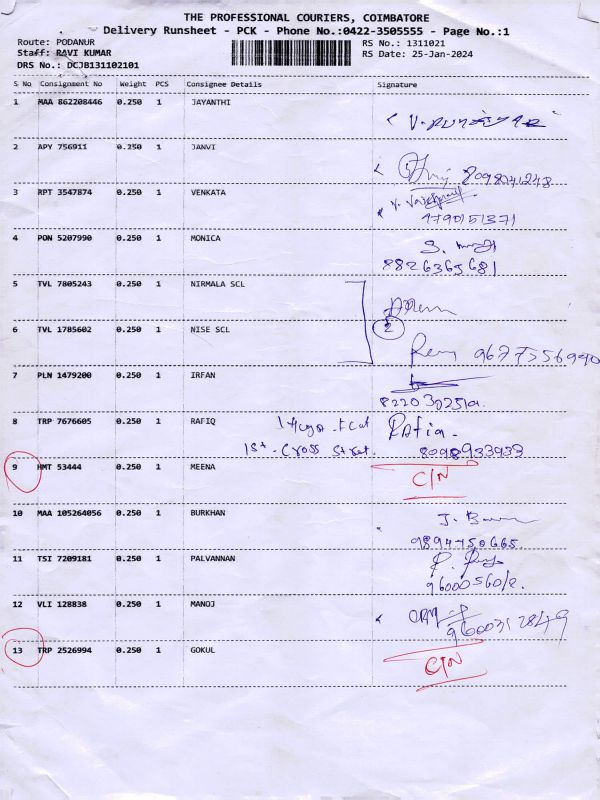 THE PROFESSIONAL COURIERS, COIMBATORE
Delivery Runsheet - PCK - Phone No.:0422-3505555 - Page No.:1
Route: PODANUR
RS No.: 1311021
Staff: RAVI KUMAR
RS Date: 25-Jan-2024
DRS No.: DCJB131102101
S No Consignment No Weight PCS Consignee Details Signature
1 MAA 862208446 0.250 1 JAYANTHI
2 APY 756911 0.250 1 JANVI
8098241248
3 RPT 3547874 0.250 1 VENKATA
1790151371
4 PON 5207990 0.250 1 MONICA
8826365681
5 TVL 7805243 0.250 1 NIRMALA SCL
6 TVL 1785602 0.250 1 NISE SCL 2
9677556940
7 PLN 1479200 0.250 1 IRFAN
8 TRP 7676605 0.250 1 RAFIQ
1st - Cross Street. 8098933933
9 HMT 53444 0.250 1 MEENA C/N
10 MAA 105264056 0.250 1 BURKHAN
9894750665
11 TSI 7209181 0.250 1 PALVANNAN
12 VLI 128838 0.250 1 MANOJ
9600312849
13 TRP 2526994 0.250 1 GOKUL C/N